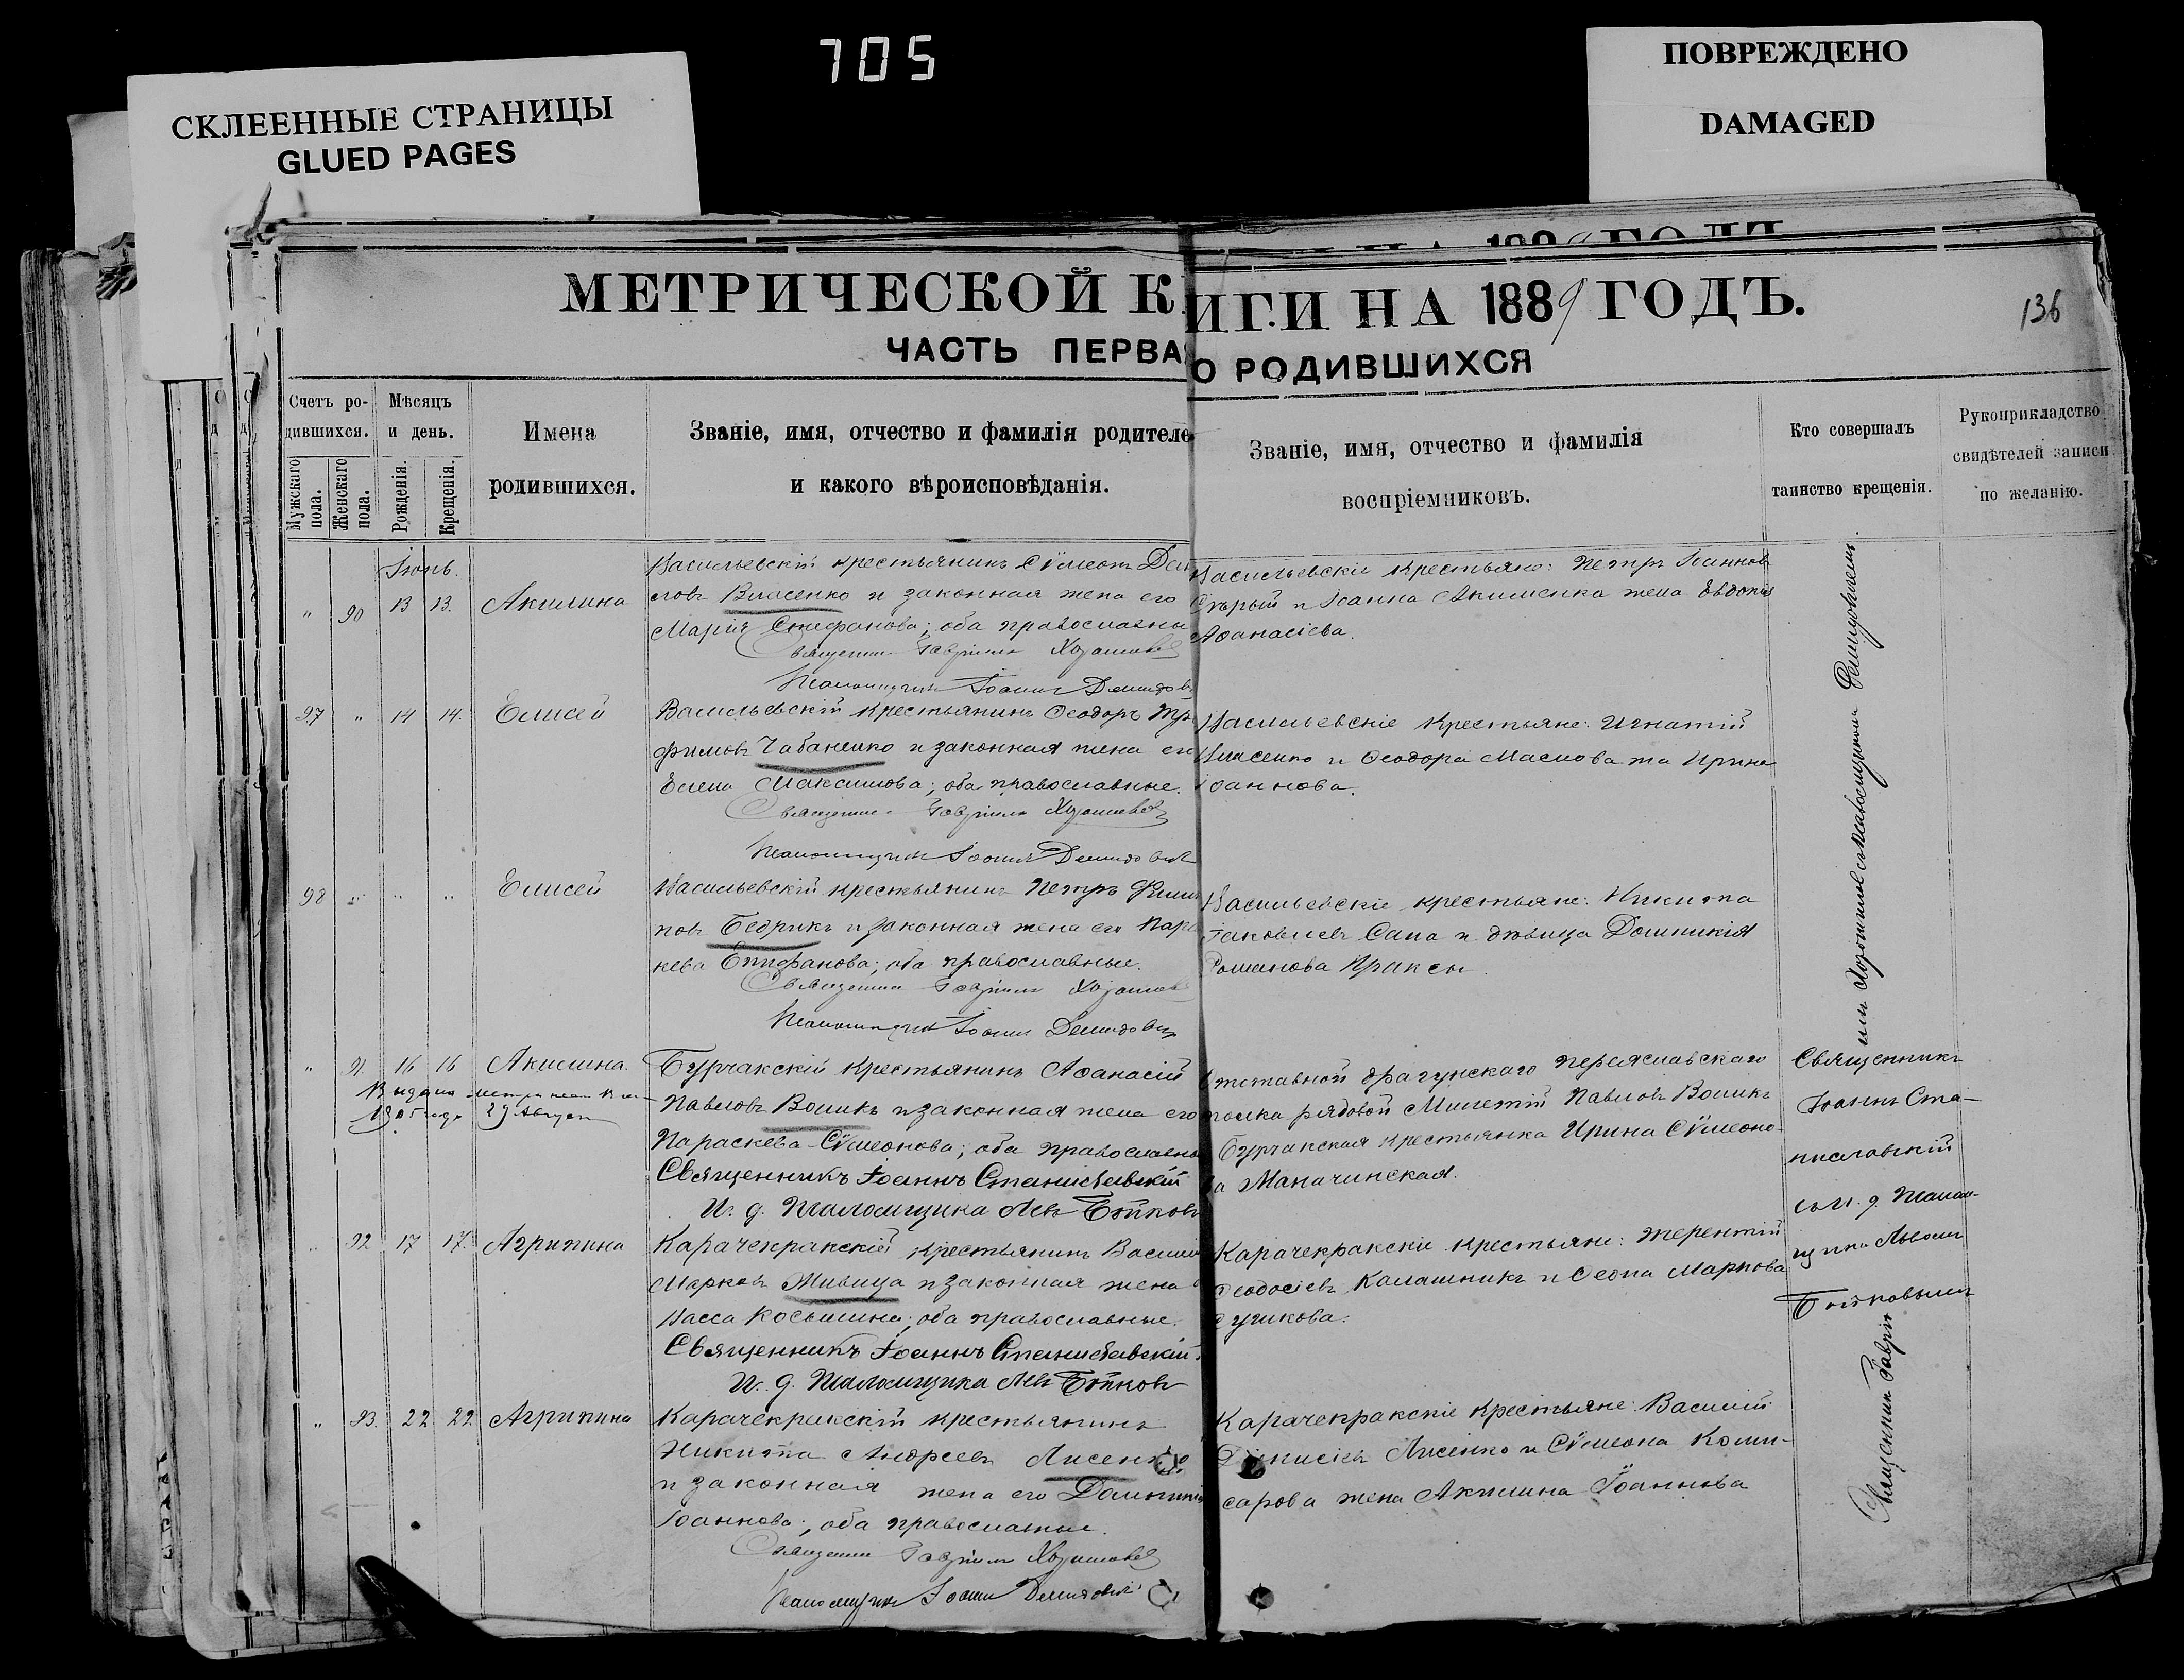 705
СКЛЕЕННЫЕ СТРАНИЦЫ
GLUED PAGES
ПОВРЕЖДЕНО
DAMAGED
МЕТРИЧЕСКОЙ К
ИГИ НА 1889 ГОДЪ.
136
ЧАСТЬ ПЕРВА
О РОДИВШИХСЯ
Счетъ ро-
дившихся.
Мужскаго пола.
Женскаго пола.
Мѣсяцъ
и день.
Рожденія.
Крещенія.
Имена
родившихся.
Званіе, имя, отчество и фамилія родителе
и какого вѣроисповѣданія.
Званіе, имя, отчество и фамилія
воспріемниковъ.
Кто совершалъ
таинство крещенія.
Рукоприкладство
свидѣтелей записи
по желанію.
Іюнь.
" 90 13 13. Акилина
Васильевскій крестьянинъ Сѵмеонъ
Власенко и законная жена его
Марія Стефанова; оба православны
Священник Гавріилъ
Псаломщикъ Іоаннъ Демидов
Васильевскіе крестьяне: Петръ Іаннов
Сѣрый и Іоанна Акименка жена Евдокія
Аѳанасіева.
97 " 14 14. Елисей
Васильевскій крестьянинъ Ѳеодоръ Тро
фимовъ Чабаненко и законная жена его
Елена Максимова; оба православные.
Священник Гавріилъ
Псаломщикъ Іоаннъ Демидов
Васильевскіе крестьяне: Игнатій
Власенко и Ѳеодора Маслова жена Ирина
Іоаннова.
98 " " " Елисей
Васильевскій крестьянинъ Петръ Филип
повъ Бедрикъ и законная жена его Пара
кева Епифанова; оба православные.
Священник Гавріилъ
Псаломщикъ Іоаннъ Демидов
Васильевскіе крестьяне: Никита
Іаковлевъ Сапа и дѣвица Домникія
Романова
" 91 16 16 Акилина.
1905 года 29 Август
Бурчакскій крестьянинъ Аѳанасій
Павловъ Воликъ и законная жена его
Параскева Сѵмеонова; оба православны
Священникъ Іоаннъ Станиславскій
И. д. Псаломщика Левъ Бойковъ
Отставной драгунскаго Переяславскаго
полка рядовой Милетій Павловъ Воликъ
Бурчакская крестьянка Ирина Сѵмеоно-
ва Маначинская.
Священникъ
Іоаннъ Ста-
ниславскій
съ И. д. Псалом-
щика Львомъ
Бойковымъ
92 17 17. Агрипина
Карачекракскій крестьянинъ Васили
Марковъ Живица и законная жена
Васса Космина; оба православные.
Священникъ Іоаннъ Станиславскій.
И. д. Псаломщика Левъ Бойковъ
Карачекракскіе крестьяне: Терентій
Ѳеодосіевъ Калашникъ и Ѳеона Маркова
" 93. 22 22. Агрипина
Карачекракскій крестьянинъ
Никита Андреевъ Лисенко
и законная жена его Домникія
Іоаннова; оба православные.
Священник Гавріилъ
Псаломщикъ Іоаннъ Демидов
Карачекракскіе крестьяне: Василій
Діонисіевъ Лисенко и Сѵмеона Коми-
сарова жена Акилина Іоаннова
Священник Гавріи